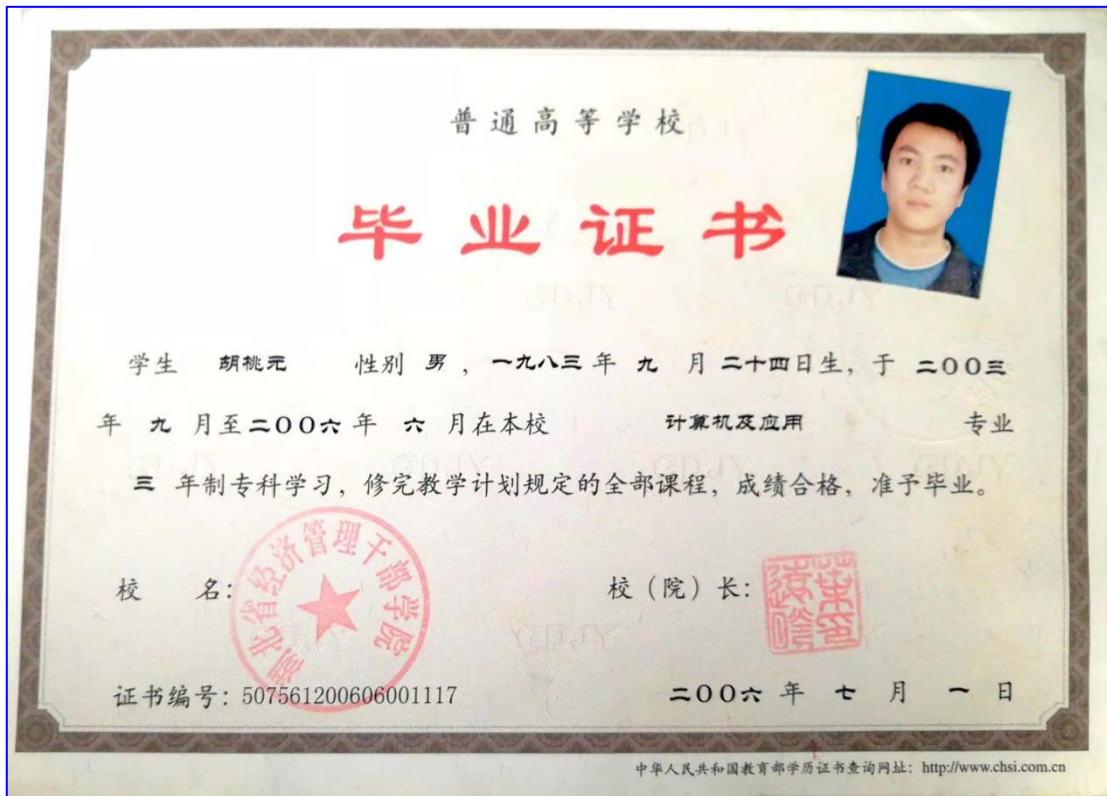 普通高等学校
毕业证书
学生 胡桃元 性别 男 ，一九八三 年 九 月 二十四日生，于 二00三
年 九 月至二00六 年 六 月在本校 计算机及应用 专业
三 年制专科学习，修完教学计划规定的全部课程，成绩合格，准予毕业。
湖北省经济管理干部学院
校 名： 校（院）长：
证书编号：507561200606001117 二00六 年 七 月 一 日
中华人民共和国教育部学历证书查询网址：http://www.chsi.com.cn